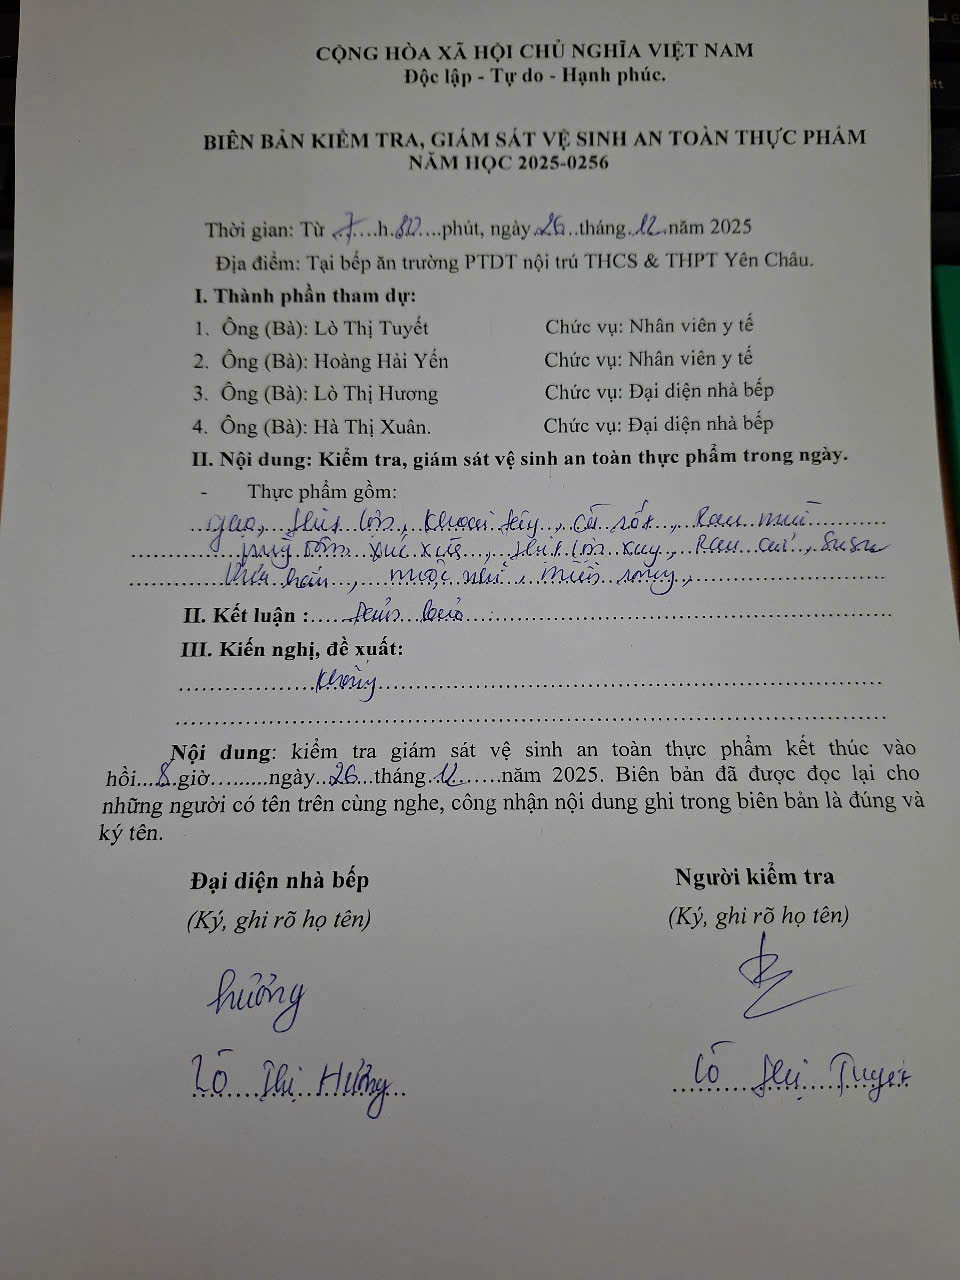 CỘNG HÒA XÃ HỘI CHỦ NGHĨA VIỆT NAM
Độc lập - Tự do - Hạnh phúc.
BIÊN BẢN KIỂM TRA, GIÁM SÁT VỆ SINH AN TOÀN THỰC PHẨM
NĂM HỌC 2025-0256
Thời gian: Từ .7....h.30....phút, ngày.26..tháng.12.năm 2025
Địa điểm: Tại bếp ăn trường PTDT nội trú THCS & THPT Yên Châu.
I. Thành phần tham dự:
1. Ông (Bà): Lò Thị Tuyết Chức vụ: Nhân viên y tế
2. Ông (Bà): Hoàng Hải Yến Chức vụ: Nhân viên y tế
3. Ông (Bà): Lò Thị Hương Chức vụ: Đại diện nhà bếp
4. Ông (Bà): Hà Thị Xuân. Chức vụ: Đại diện nhà bếp
II. Nội dung: Kiểm tra, giám sát vệ sinh an toàn thực phẩm trong ngày.
- Thực phẩm gồm:
gạo, thịt lợn, khoai tây, cà rốt, Rau mùi
xúc xích, thịt lợn xay, Rau cải, Susu
II. Kết luận : Đảm bảo
III. Kiến nghị, đề xuất:
Không
Nội dung: kiểm tra giám sát vệ sinh an toàn thực phẩm kết thúc vào
hồi....8.giờ.........ngày..26...tháng.12.......năm 2025. Biên bản đã được đọc lại cho
những người có tên trên cùng nghe, công nhận nội dung ghi trong biên bản là đúng và
ký tên.
Đại diện nhà bếp Người kiểm tra
(Ký, ghi rõ họ tên) (Ký, ghi rõ họ tên)
Hương
Lò Thị Hương Lò Thị Tuyết